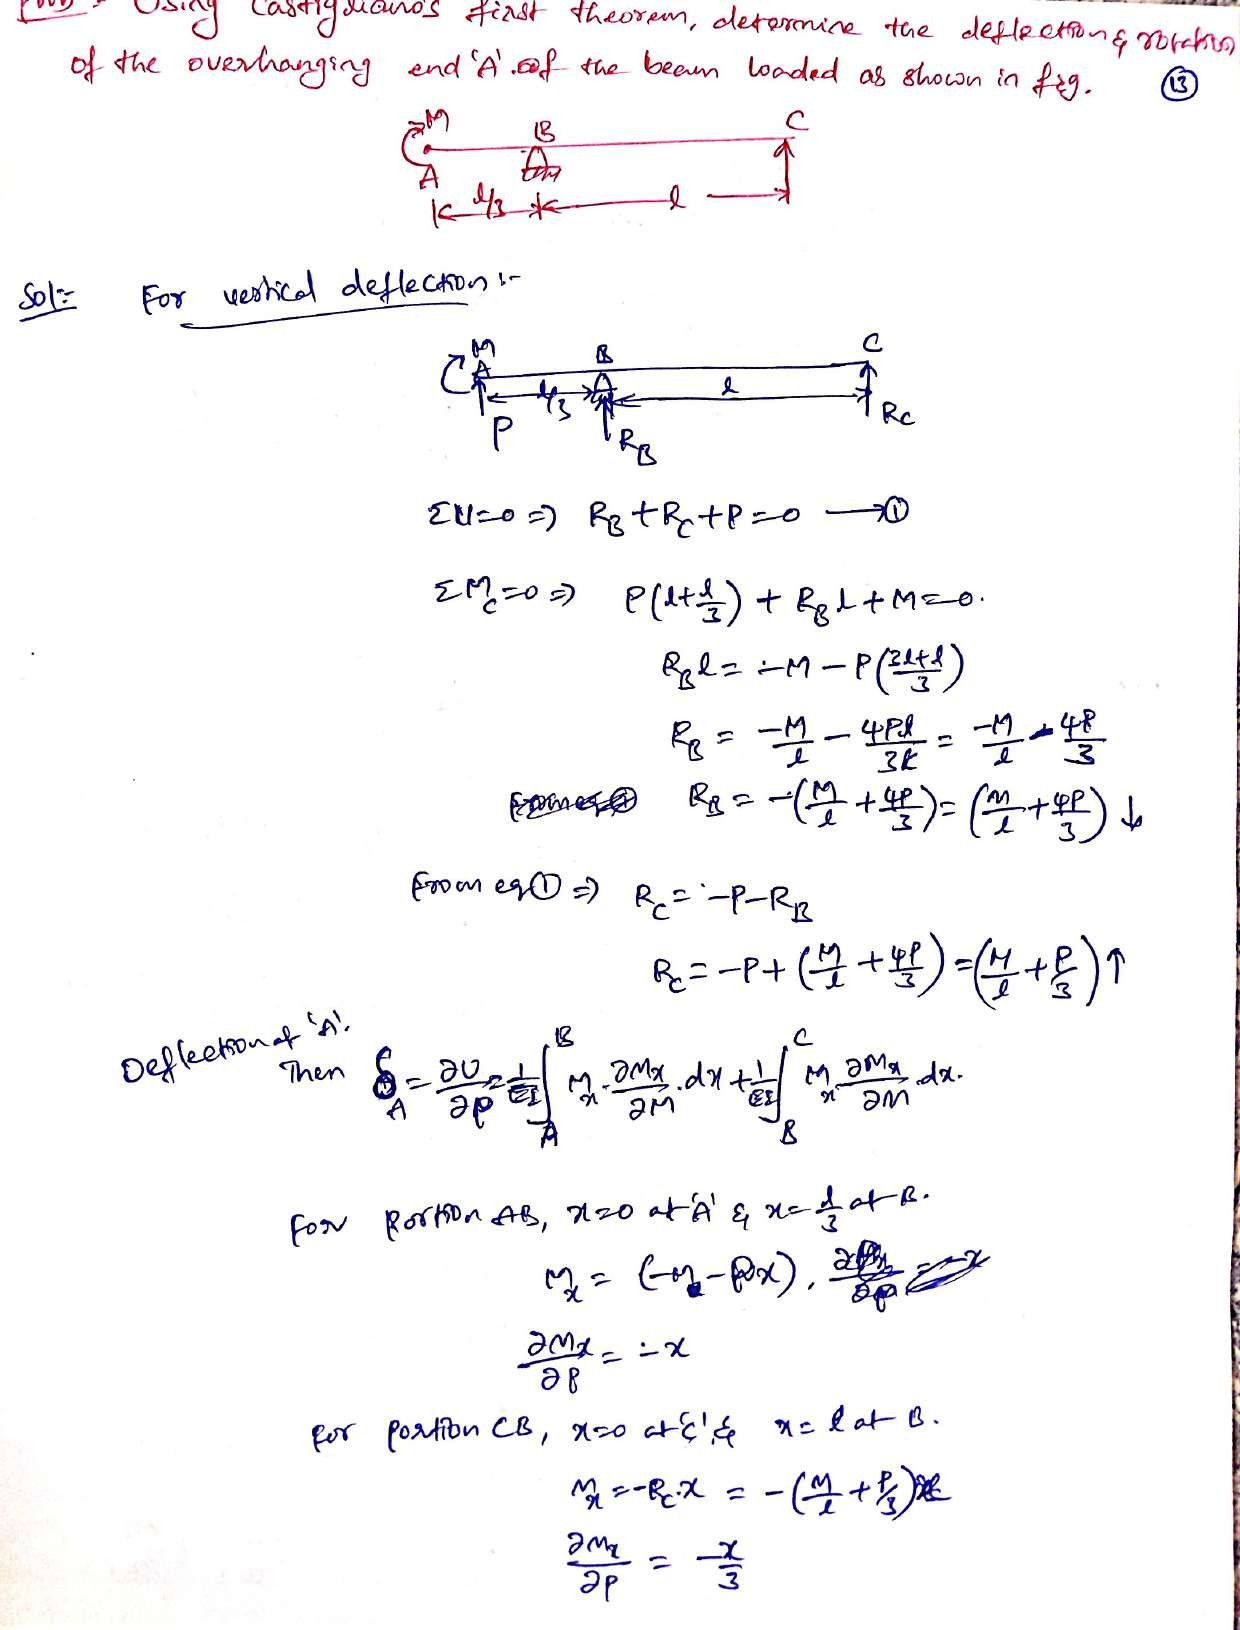 Using Castigliano's first theorem, determine the deflection & rotation
of the overhanging end 'A' of the beam loaded as shown in fig. (13)
M B C
A
l/3 l
Sol:- For vertical deflection :-
M B C
A
l/3 l
P R_B R_C
ΣV=0 => R_B + R_C + P = 0 → ①
ΣM_C=0 => P(l+l/3) + R_B l + M = 0.
R_B l = -M - P(3l+l/3)
R_B = -M/l - 4Pl/3l = -M/l - 4P/3
R_B = -(M/l + 4P/3) = (M/l + 4P/3) ↓
From eq ① => R_C = -P - R_B
R_C = -P + (M/l + 4P/3) = (M/l + P/3) ↑
Deflection of 'A'.
Then δ_A = ∂U/∂P = 1/EI ∫_A^B M_x . ∂M_x/∂M . dx + 1/EI ∫_B^C M_x . ∂M_x/∂M . dx.
For Portion AB, x=0 at 'A' & x = l/3 at B.
M_x = (-M - Px),
∂M_x/∂P = -x
For Portion CB, x=0 at 'C' & x = l at B.
M_x = -R_C.x = -(M/l + P/3)x
∂M_x/∂P = -x/3